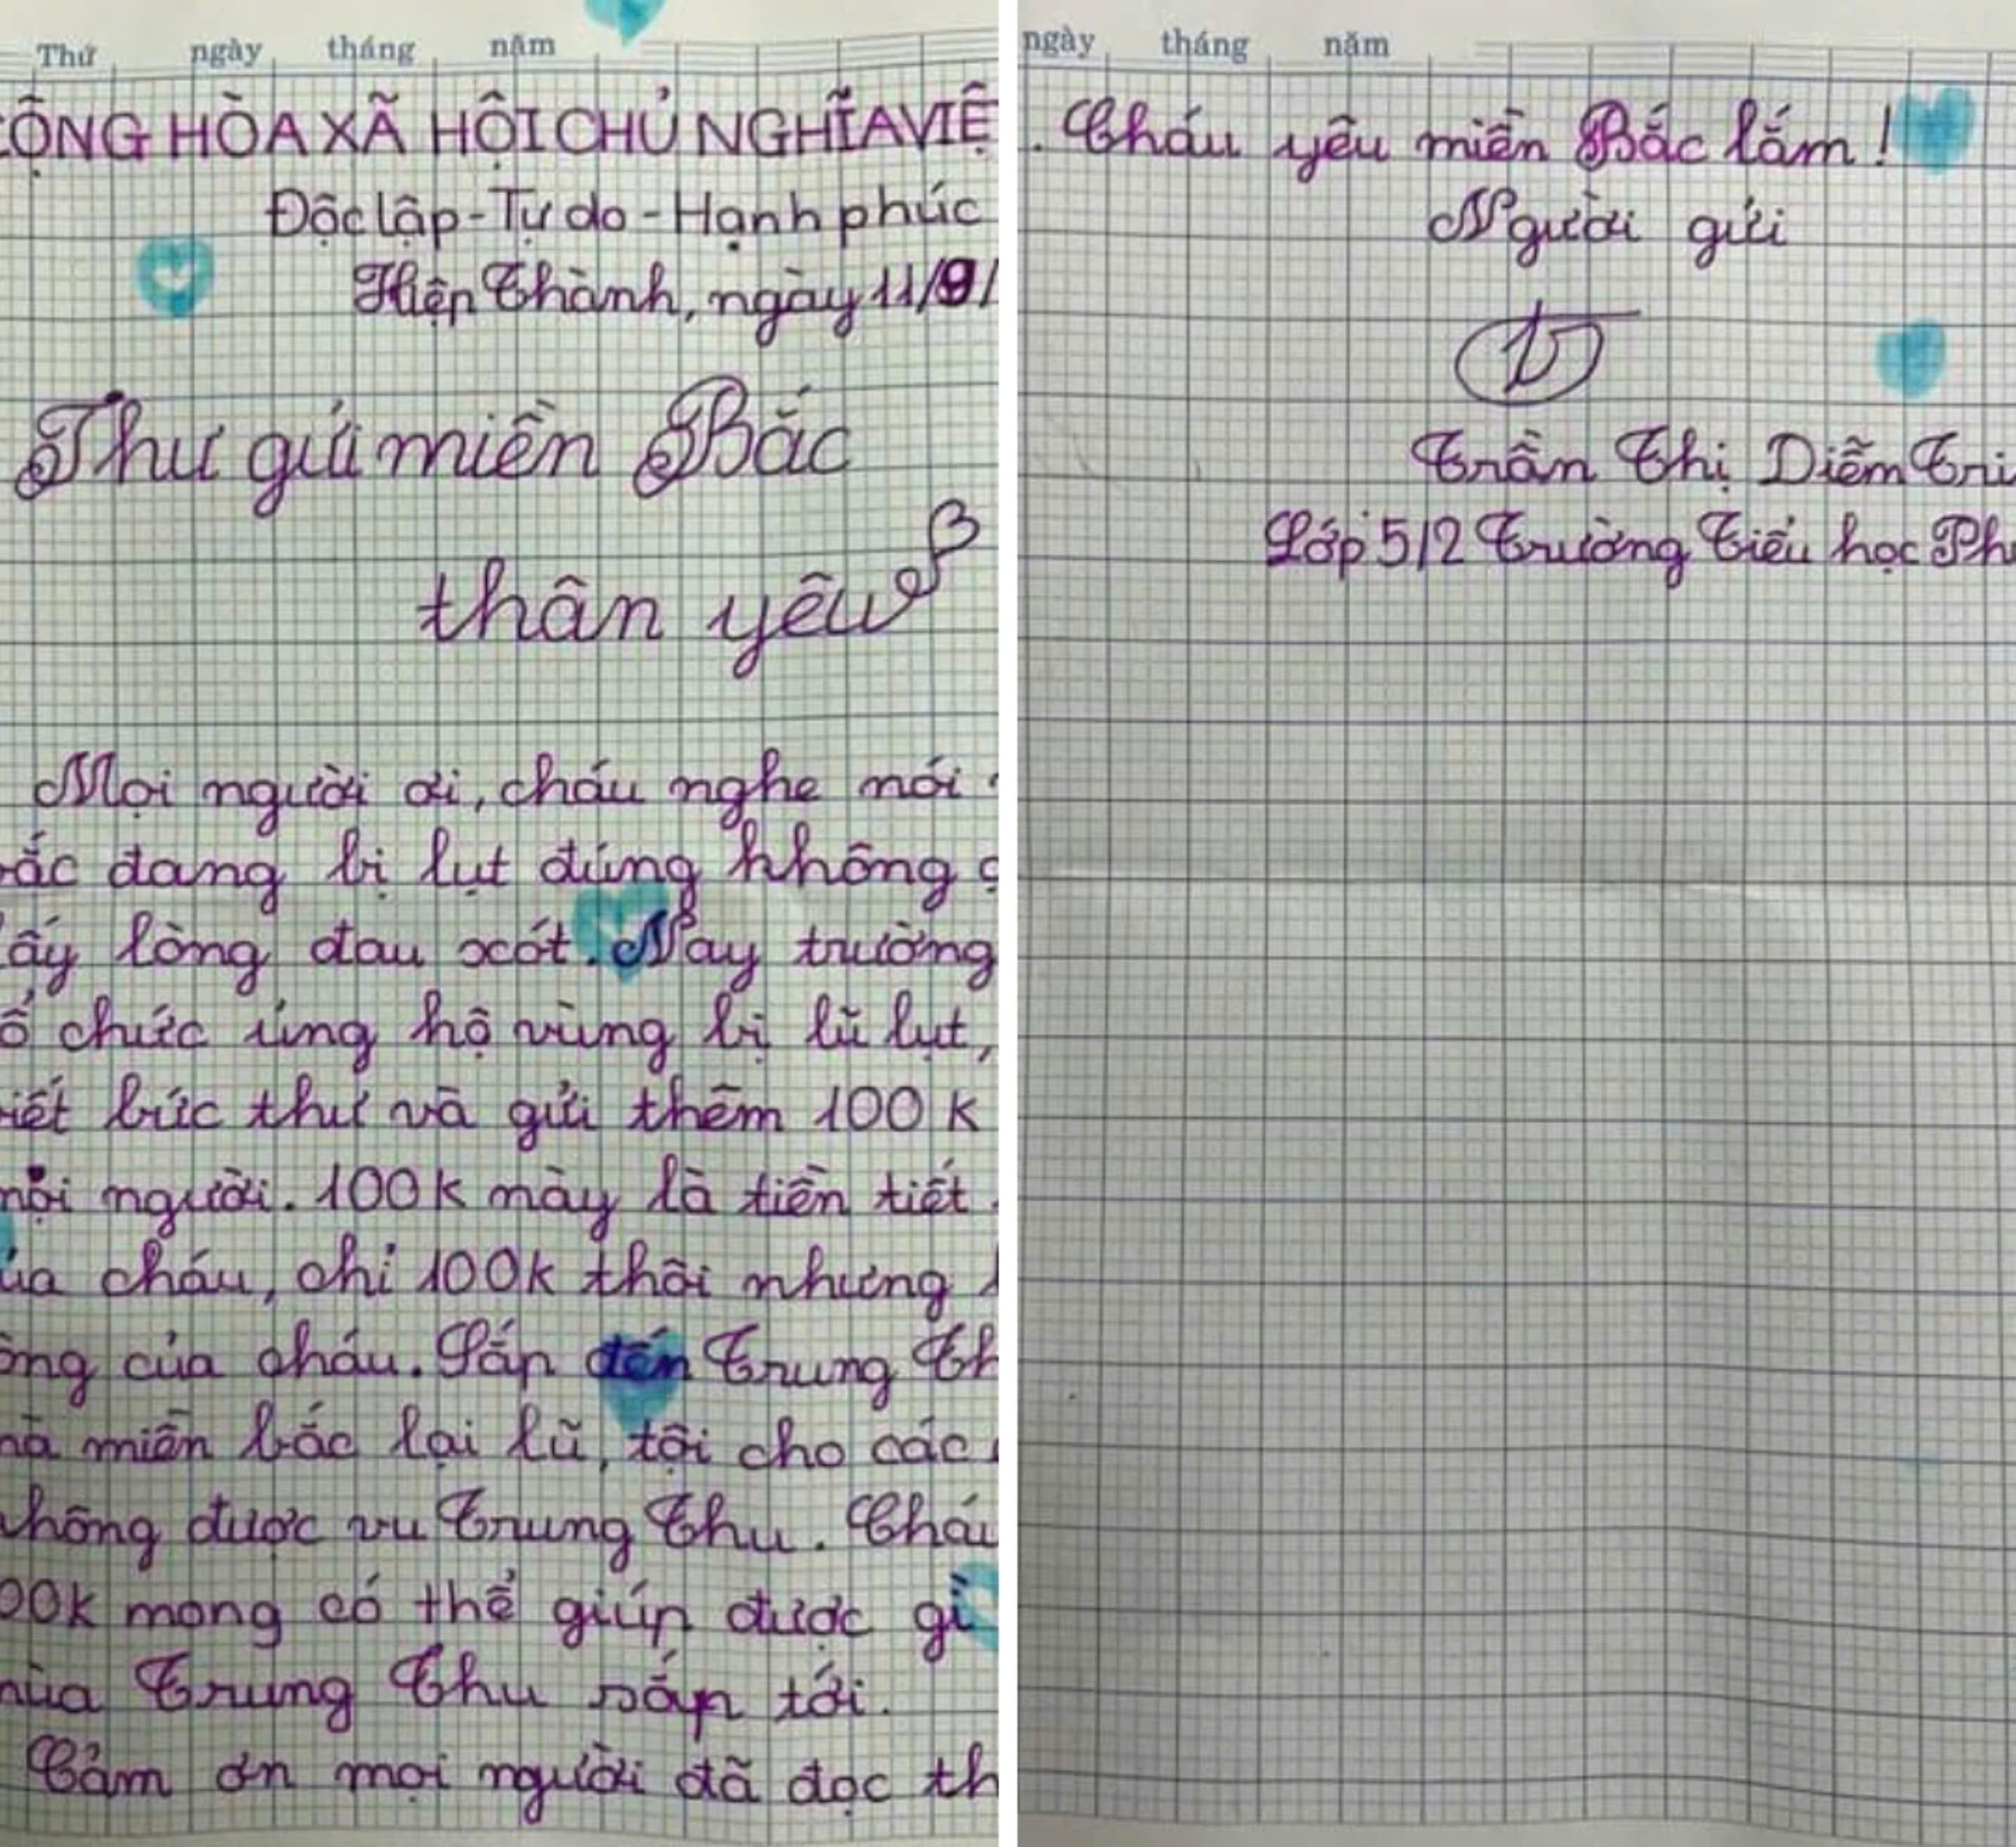 Thứ ngày tháng năm
CỘNG HÒA XÃ HỘI CHỦ NGHĨA VIỆ
Độc lập - Tự do - Hạnh phúc
Hiệp Thành, ngày 11/9/
Thư gửi miền Bắc
thân yêu
Mọi người ơi, cháu nghe nói
bắc đang bị lụt đúng không
ấy lòng đau xót. Nay trường
ổ chức ủng hộ vùng bị lũ lụt,
iết bức thư và gửi thêm 100k
mọi người. 100k này là tiền tiết
ủa cháu, chỉ 100k thôi nhưng
òng của cháu. Sắp đến Trung Th
mà miền bắc lại lũ, tội cho các
không được vu Trung Thu. Cháu
00k mong có thể giúp được gì
mùa Trung Thu sắp tới.
Cảm ơn mọi người đã đọc th
ngày tháng năm
. Cháu yêu miền Bắc lắm!
Người gửi
T
Trần Thị Diễm Tri
Lớp 5/2 Trường Tiểu học Ph